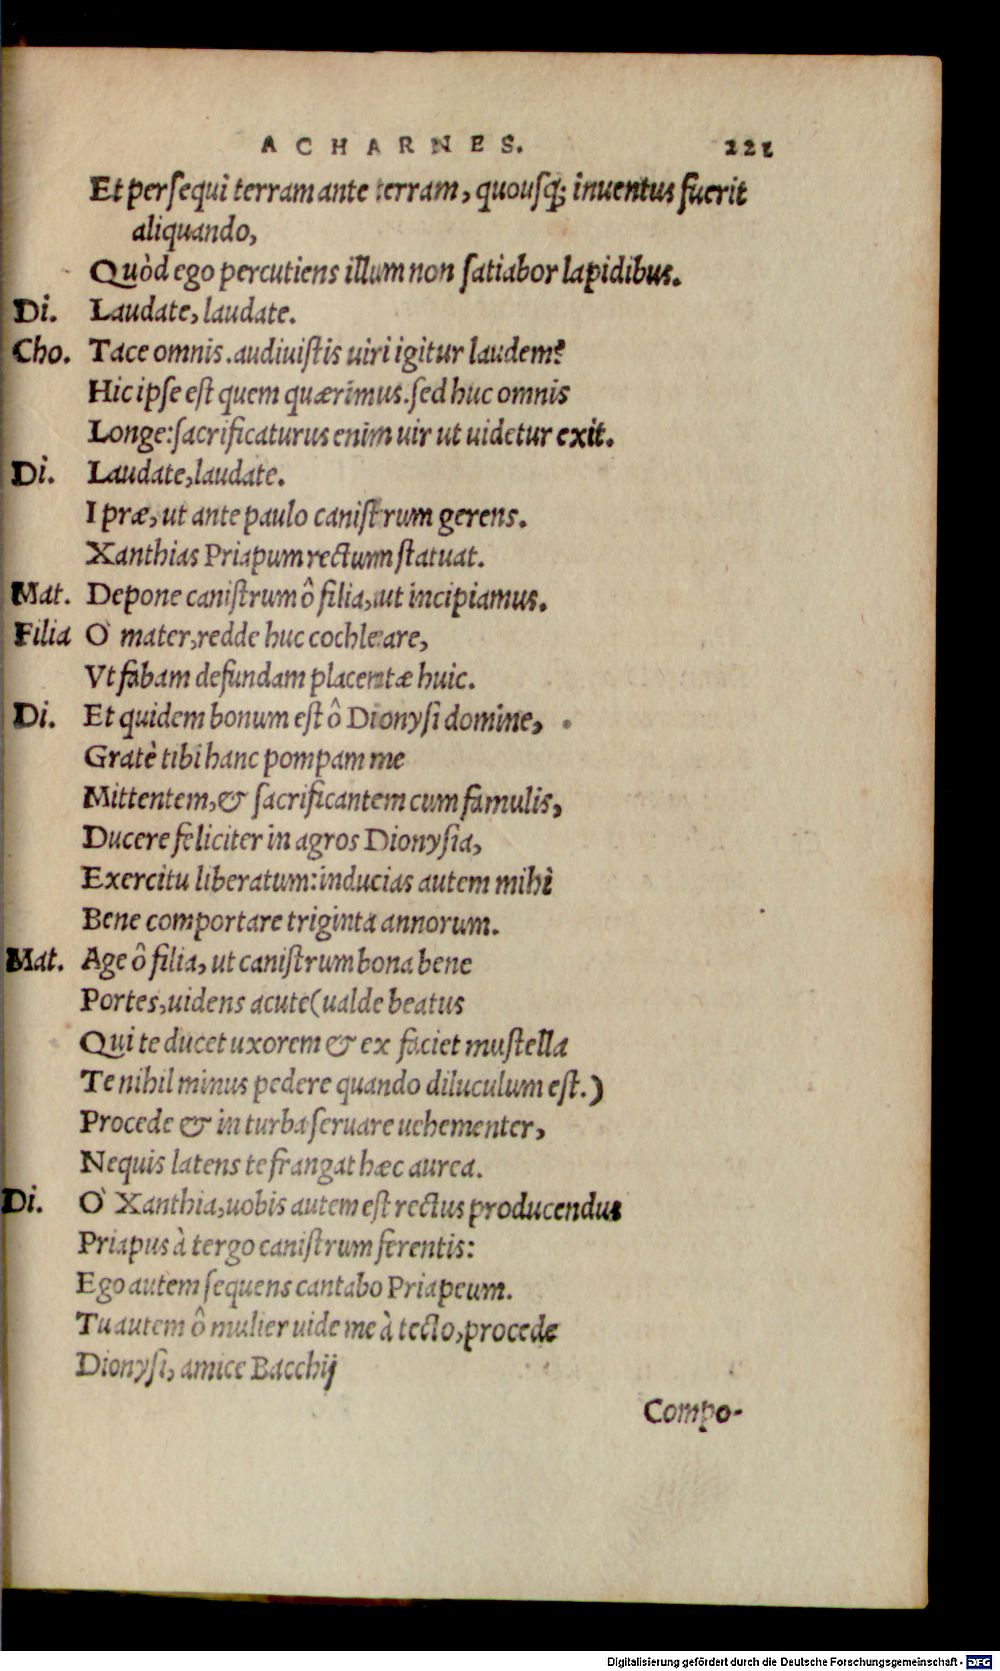 ACHARNES. 221
Et perſequi terram ante terram, quouſq; inuentus fuerit
aliquando,
Quòd ego percutiens illum non ſatiabor lapidibus.
Di. Laudate, laudate.
Cho. Tace omnis. audiuiſtis uiri igitur laudem?
Hic ipſe eſt quem quærimus. ſed huc omnis
Longe: ſacrificaturus enim uir ut uidetur exit.
Di. Laudate, laudate.
I præ, ut ante paulo caniſtrum gerens.
Xanthias Priapum rectum ſtatuat.
Mat. Depone caniſtrum ô filia, ut incipiamus.
Filia Ò mater, redde huc cochleare,
Vt fabam defundam placentæ huic.
Di. Et quidem bonum eſt ô Dionyſi domine,
Gratè tibi hanc pompam me
Mittentem, & ſacrificantem cum famulis,
Ducere feliciter in agros Dionyſia,
Exercitu liberatum: inducias autem mihi
Bene comportare triginta annorum.
Mat. Age ô filia, ut caniſtrum bona bene
Portes, uidens acute (ualde beatus
Qui te ducet uxorem & ex faciet muſtella
Te nihil minus pedere quando diluculum eſt.)
Procede & in turba ſeruare uehementer,
Nequis latens te frangat hæc aurea.
Di. Ò Xanthia, uobis autem eſt rectus producendus
Priapus à tergo caniſtrum ferentis:
Ego autem ſequens cantabo Priapeum.
Tu autem ô mulier uide me à tecto, procede
Dionyſi, amice Bacchij
Compo-
Digitalisierung gefördert durch die Deutsche Forschungsgemeinschaft - DFG